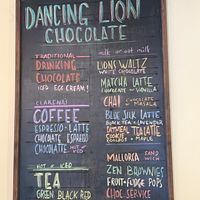 DANCING LION
CHOCOLATE
TRADITIONAL
DRINKING
CHOCOLATE
ICED EGG CREAM!
COFFEE
ESPRESSO LATTE
CHOCOLATE ESPRESSO
CHOCOLATE HOT or ICED
HOT or ICED
TEA
GREEN BLACK RED
milk or oat milk
LIONS WALTZ
WHITE CHOCOLATE
MATCHA LATTE
CHOCOLATE VANILLA
CHAI CHOCOLATE MASALA
BLUE SILK LATTE
BLACK TEA LAVENDER
OATMEAL COOKIE TEA LATTE
ROOIBOS MAPLE
MALLORCA SANDWICH
ZEN BROWNIES
FRUIT FUDGE POPS
CHOC. SERVICE